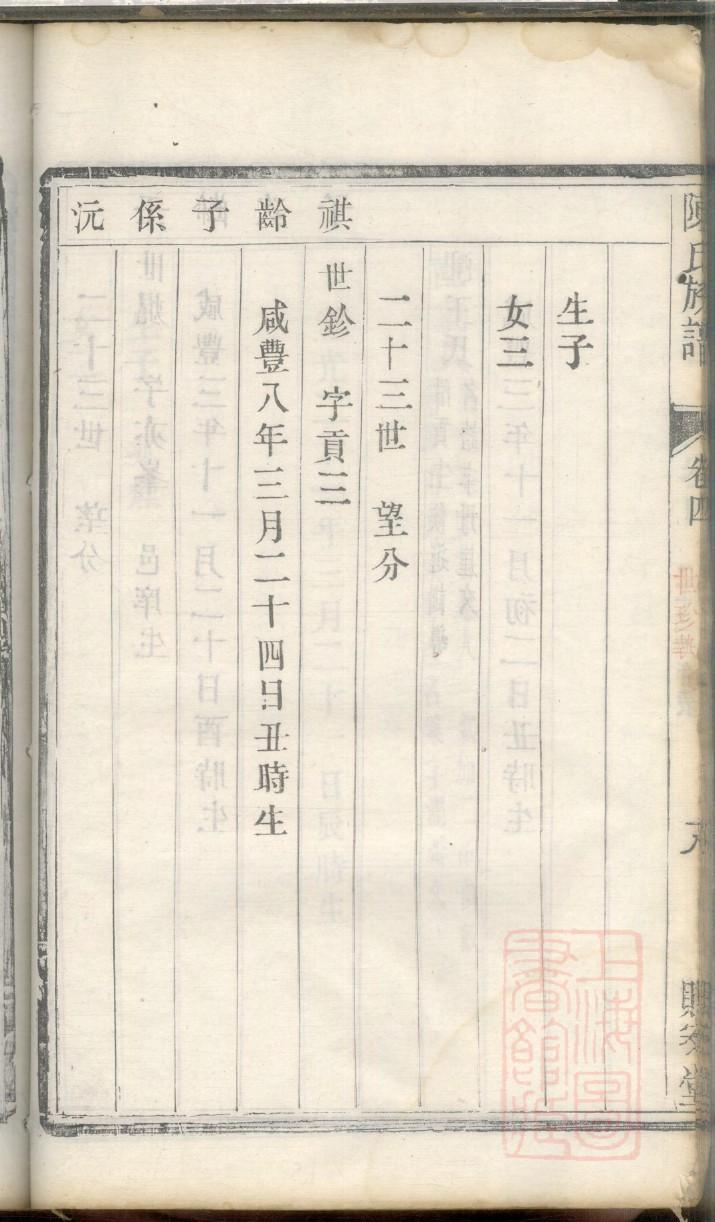 陳氏族譜
卷四
生子
女三
二十三世 望分
祺
世鉁 字貢三
齡
咸豐八年三月二十四日丑時生
子
係
沅
上海圖書館藏